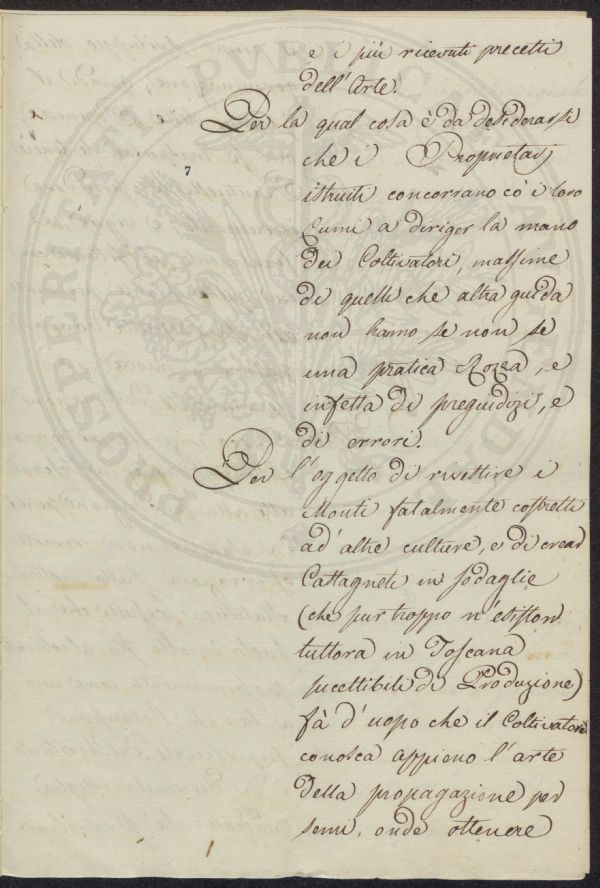 e i più ricevuti precetti
dell'Arte.
Per la qual cosa è da desiderarsi
che i Proprietarj
istruiti concorrano cò i loro
Lumi a diriger la mano
dei Coltivatori, massime
di quelli che altra guida
non hanno se non se
una pratica Rozza, e
infetta di pregiudizi, e
di errori.
Per l'oggetto di rivestire i
Monti fatalmente costretti
ad' altre culture, e di crear
Castagneti in sodaglie
(che pur troppo n'esiston
tuttora in Toscana
sucettibili di Produzione)
fà d'uopo che il Coltivatore
conosca appieno l'arte
della propagazione per
semi, onde ottenere
7
PROSPERITÀ PUBBLICA